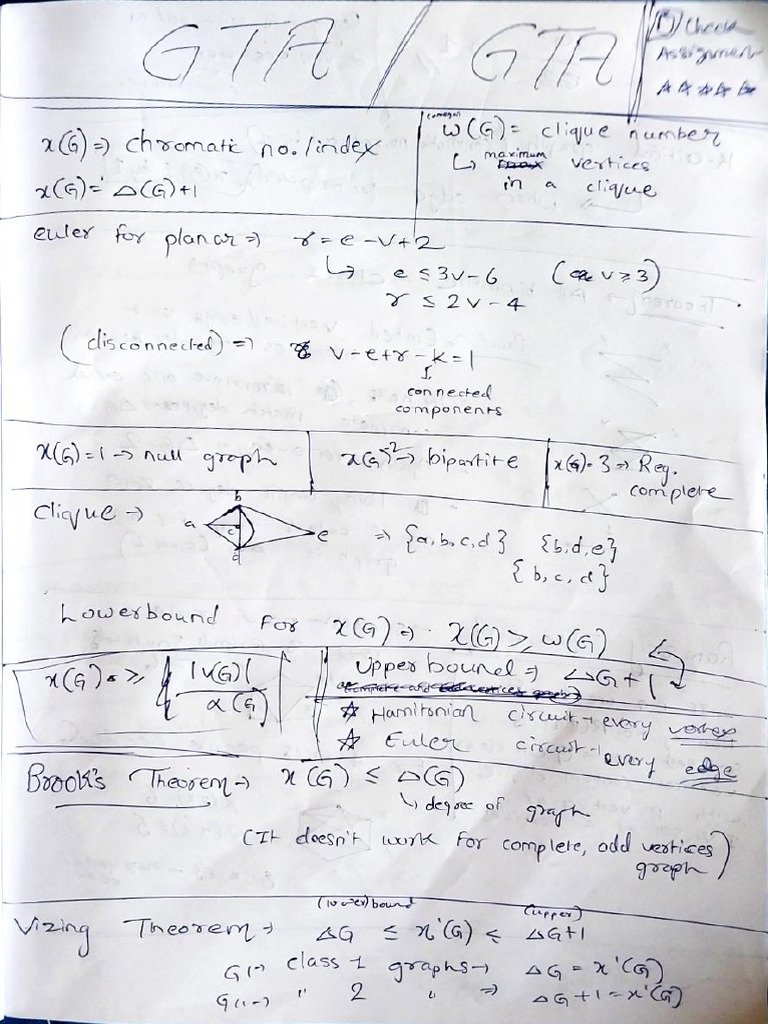 GTA / GTA
Check
Assignment
☆☆☆☆☆
x(G) => chromatic no./index
x(G) = Δ(G)+1
(omega)
w(G) = clique number
↳ maximum vertices
in a clique
euler for planar => r = e-v+2
↳ e ≤ 3v-6 (v≥3)
r ≤ 2v-4
(disconnected) => v-e+r-k=1
connected
components
x(G)=1 → null graph
x(G)=2 → bipartite
x(G)=3 => Reg.
complete
Clique → a b c d e => {a,b,c,d} {b,d,e}
{b,c,d}
Lowerbound for x(G) => x(G) ≥ w(G)
x(G) ≥ |V(G)| / α(G)
Upper bound => ΔG+1
☆ Hamitonian circuit → every vertex
☆ Euler circuit → every edge
Brook's Theorem → x(G) ≤ Δ(G)
↳ degree of graph
(It doesn't work for complete, odd vertices
graph)
(lower) bound (upper)
Vizing Theorem → ΔG ≤ x'(G) ≤ ΔG+1
G1 → class 1 graphs → ΔG = x'(G)
G11 → " 2 " => ΔG+1 = x'(G)